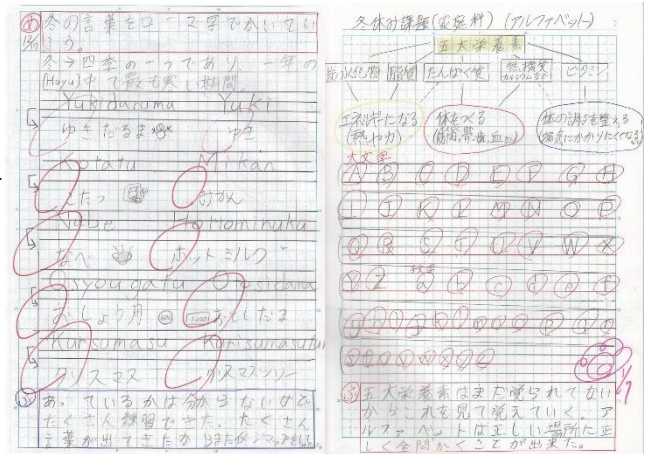 冬の言葉をローマ字でかいてい
こう。
冬→四季の一つであり、一年の
(Huyu)中で最も寒い期間。
Yukidaruma Yuki
ゆきだるま ゆき
Kotatu Mikan
こたつ みかん
Nabe
なべ ホットミルク
Osyougatu Otosidama
おしょう月 おとしだま
Kurisumasu
クリスマス クリスマスツリー
あっているかは分からないけど
たくさん練習できた。たくさん
言葉が出てきたから
冬休み課題(家庭科)(アルファベット)
五大栄養素
炭水化物 脂質 たんぱく質 無機質 ビタミン
エネルギーになる 体をつくる 体の調子を整える
(熱や力)
大文字
A B C D E F G H
I J K L M N O P
Q R S T U V W X
Y Z a b c d e f
五大栄養素はまだ覚られてない
からこれを見て覚えていく。ア
ルファベットは正しい場所に正
しく全問かくことが出来た。
1/7